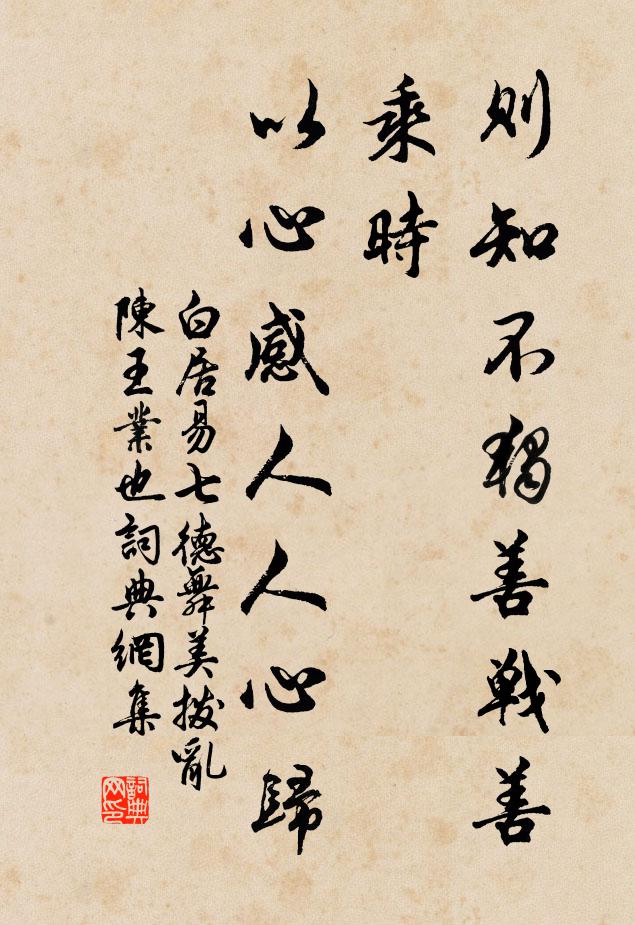 則知不獨善戰善
乘時
以心感人人心歸
白居易七德舞美撥亂
陳王業也詞典網集
詞典
网印